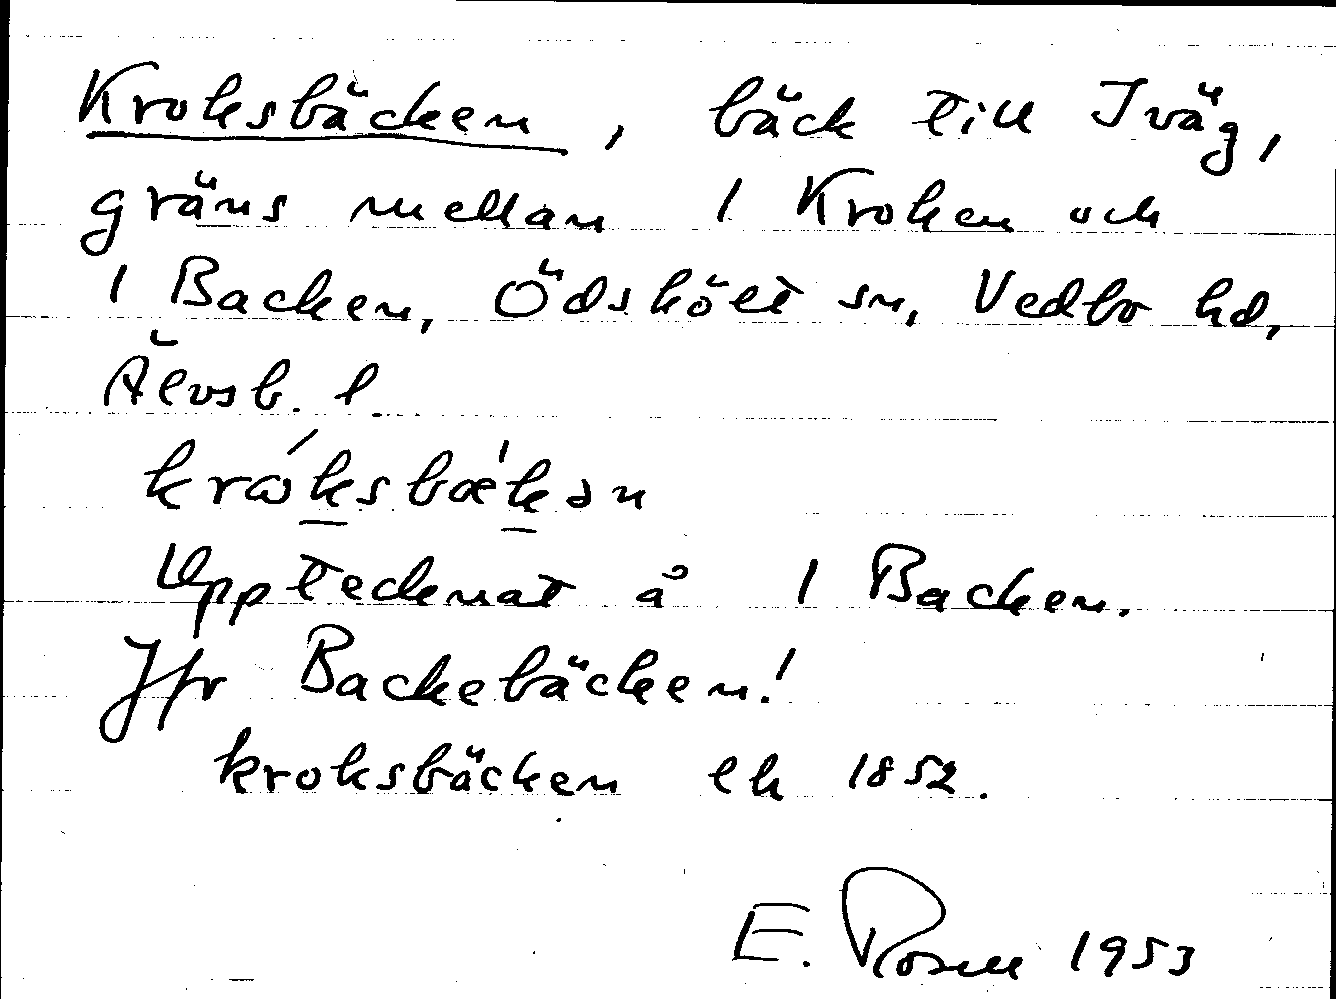 Kroksbäcken, bäck till Iväg,
gräns mellan 1 Kroken och
1 Backen, Ödskölt sn, Vedbo hd,
Älvsb. l.
krωksbækən
Upptecknat å 1 Backen.
Jfr Backebäcken!
kroksbäcken ek 1852.
E. Rosell 1953